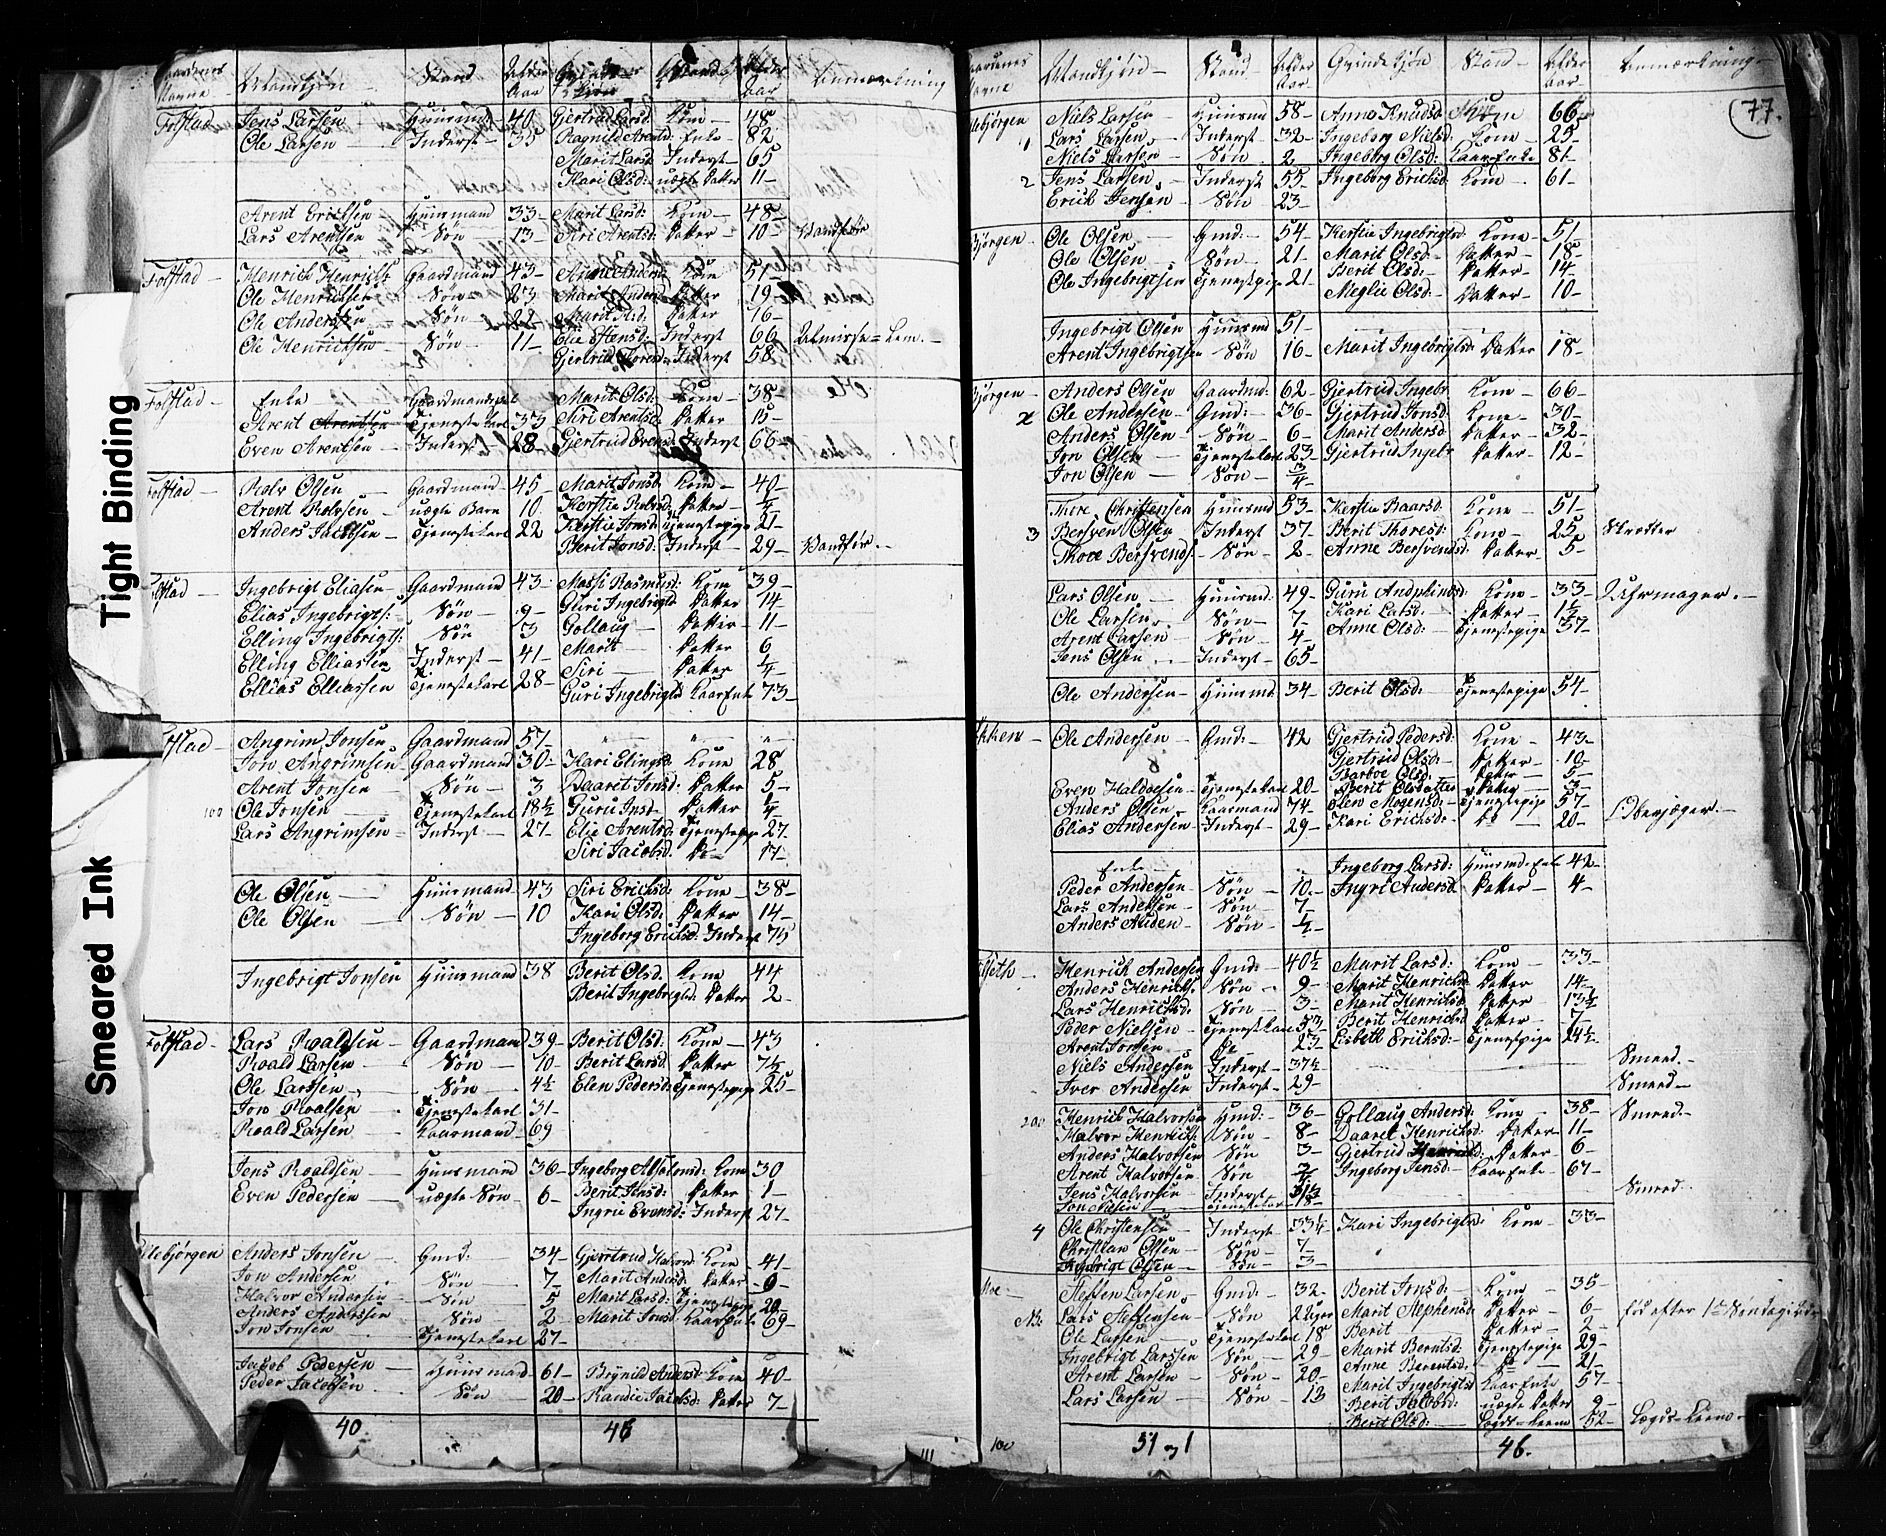 Tight Binding
Smeared Ink
Mandkjøn Stand Alder Aar Qvindekjøn Stand Alder aar Anmærkning
Folstad Jens Larsen Huusmd 40 Gjertrud Larsd: Kone 48
Ole Larsen Inderst 35 Ragnild Arentsd Enke 82
Marit Larsd Inderst 65
Kari Olsd: uægte Datter 11
Arent Ericksen Huusmand 33 Marit Larsd: Kone 48
Lars Arentsen Søn 13 Siri Arentsd: Datter 10 Vandføre
Folstad Henrich Henrichs Gaardmand 43 Anne Andersd Kone 51
Ole Henrichsen Søn 23 Marit Andersd Datter 19
Ole Andersen Søn 22 Marit H:d: Datter 16
Ole Henrichsen Søn 11 Elie Stensd: Inderst 66 Almisse-Lem
Gjertrud Toresd: Inderst 58
Folstad Enke Marit Olsd Kone 38
Arent Arentsen Tjenestekarl 33 Siri Arentsd Datter 15
Even Arentsen Inderst 28 Gjertrud Evensd: Inderst 66
Folstad Rolv Olsen Gaardmand 45 Marit Jonsd: Kone 40
Arent Rolvsen uægte Barn 10 Kerstie Rolvsd: Datter
Anders Jacobsen Tjenestekarl 22 Kerstie Jonsd: Tjenestepige 21
Berit Jonsd: Inderst 29 Vandfør
Folstad Ingebrigt Eliasen Gaardmand 43 Massi Rasmusd: Kone 39
Elias Ingebrigts: Søn 9 Guri Ingebrigtsd Datter 14
Elling Ingebrigts: Søn 3 Gollaug Datter 11
Elling Elliasen Inderst 41 Marit Datter 6
Ellias Elliassen Tjenestekarl 28 Siri Datter 1/4
Guri Ingebrigtsd KaarEnke 73
Folstad Angrim Jonsen Gaardmand 57
Jon Angrimsen Gaardmand 30 Kari Elingsd: Kone 28
Arent Jonsen Søn 3 Daaret Jonsd: Datter 5
100 Ole Jonsen Tjenestekarl 18½ Guru Jonsd: Datter 1/4
Lars Angrimsen Inderst 27 Elie Arentsd: Tjenestepige 27
Siri Jacobsd: Do 17
Ole Olsen Huusmand 43 Siri Ericksd: Kone 38
Ole Olsen Søn 10 Kari Olsd: Datter 14
Ingeborg Ericksd: Inderst 75
Ingebrigt Jonsen Huusmand 38 Berit Olsd. Kone 44
Berit Ingebrigtsd: Datter 2
Folstad Lars Roaldsen Gaardmand 39 Berit Olsd. Kone 43
Roald Larsen Søn 10 Berit Larsd: Datter 7½
Ole Larssen Søn 4½ Elen Pedersd: Tjenestepige 25
Jon Roalsen Tjenestekarl 31
Roald Larsen Kaarmand 69
Jens Roaldsen Huusmand 36 Ingeborg Absalonsd: Kone 30
Even Pedersen uægte Søn 6 Berit Jensd: Datter 1
Ingrie Evensd: Inderst 27
Ellebjørgen Anders Jonsen Gmd: 34 Gjertrud Halvorsd Kone 41
Jon Andersen Søn 7 Marit Andersd: Datter 9
Halvor Andersen Søn 5 Marit Larsd: Tjenestepige 20
Anders Anderssen Søn 2 Marit Jonsd: KaarEnke 69
Jon Jonsen Tjenestekarl 27
Jacob Pedersen Huusmand 61 Brynild Andersd Kone 40
Peder Jacobsen Søn 20 Randie Jacobsd: Datter 7
40 48
Mandkjøn Stand Alder Aar Qvindekjøn Stand Alder aar Anmærkning
77.
Ellebjørgen Niels Larsen Huusmd 58 Anne Knudsd Kone 66
1 Lars Larsen Inderst 32 Ingeborg Nielsd: Kone 25
Niels Larsen Søn 2 Ingeborg Olsd: KaarEnke 81
2 Jens Larsen Inderst 55 Ingeborg Ericksd Kone 61
Erick Jensen Søn 23
Bjørgen Ole Olsen Gmd: 54 Kerstie Ingebrigtsd Kone 51
Ole Olsen Søn 21 Marit Olsd Datter 18
Ole Ingebrigtsen Tjenestepige 21 Berit Olsd: Datter 14
Meglie Olsd: Datter 10
Ingebrigt Olsen Huusmd 51
Arent Ingebrigtsen Søn 16 Marit Ingebrigtsd: Datter 18
Bjørgen Anders Olsen Gaardmd: 62 Gjertrud Ingebr Kone 66
Ole Andersen Gmd: 36 Gjertrud Jonsd: Kone 30
Anders Olsen Søn 6 Marit Andersd Datter 32
Jon Olsen Tjenestekarl 23 Gjertrud Ingebr Datter 12
Jon Olsen Søn 3/4
Thore Christensen Huusmd 53 Kerstie Baarsd: Kone 51
3 Bersvend Olsen Inderst 37 Berit Thoresd: Kone 25 Skrædder
Thore Bersvends: Søn 2 Anne Bersvendsd: Datter 5
Lars Olsen Huusmd 49 Guru Kone 33 Uhrmager.
Ole Larsen Søn 7 Kari Larsd: Datter 1½
Arent Larsen Søn 4 Anne Olsd: Tjenestepige 37
Jens Olsen Inderst 65
Ole Andersen Huusmd 34 Berit Olsd: Tjenestepige 54
Ole Andersen Gmd: 42 Gjertrud Pedersd: Kone 43
Gjertrud Olsd: Datter 10
Barboe Olsd: Datter 5
Even Haldosen Tjenestekarl 20 Berit Olsdatter Datter 3
Anders Olsen Kaarmand 74 Elen Mogensd: Tjenestepige 57
Elias Andersen Inderst 29 Kari Ericksd: Do 20 Oberjæger.
Enke Ingeborg Larsd: Huusmd: Enke 42
Peder Andersen Søn 10 Ingri Andersd Datter 4
Lars Andersen Søn 7
Anders Søn
Henrich Andersen Gmd: 40½ Marit Larsd: Kone 33
Anders Henrichs: Søn 9 Marit Henricksd Datter 14
Lars Henrichsd: Søn 3 Marit Henrichsd Datter 13½
Peder Nielsen Tjenestekarl 53 Berit Henricksd Datter 7
Arent Jonsen Do 23 Lisbeth Ericksd: Tjenestepige 24½
Niels Andersen Inderst 37½ Smeed.
Iver Andersen Inderst 29 Smeed
200 Henrich Halvorsen Hmd: 36 Gollaug Andersd: Kone 38 Smeed
Halvor Henrichs: Søn 8 Daaret Henricksd: Datter 11
Anders Halvorsen Søn 3 Gjertrud Henricksd: Datter 6
Arent Halvorsen Søn Ingeborg Jensd: KaarEnke 67
Jens Halvorsen Inderst 31½ Smeed
Tjenestekarl 18
4 Ole Christensen Inderst 33½ Kari Ingebrigtsd: Kone 33
Christian Olsen Søn 7
Ingebrigt Olsen Søn 3
Moe Steffen Larsen Gmd: 32 Berit Jonsd: Kone 35
Nb: Lars Steffensen Søn 2 Uger Marit Stephensd: Datter 6 fød efter 1ste Søndag i
Ole Larsen Tjenestekarl 18 Berit Datter 2
Ingebrigt Larssen Søn 29 Marit Berntsd: Tjenestepige 29
Arent Larsen Søn 20 Anne Berentsd: Do 21
Lars Larsen Søn 13 Marit Ingebrigtsd KaarEnke 57
Berit Jacobsd: uægte Datter 9
Berit Olsd: Lægds-Leem 62 Lægds-Leem
100 51 og 1 46.